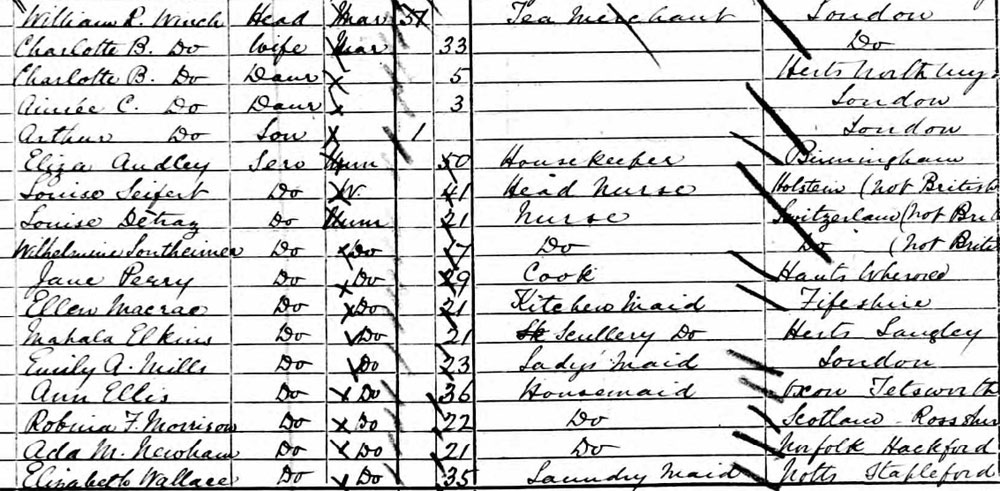 William R. Winch Head Mar 37 Tea Merchant London
Charlotte B. Do Wife Mar 33 Do
Charlotte B. Do Daur 5 Herts
Aimée C. Do Daur 3 London
Arthur Do Son 1 London
Eliza Audley Serv Unm 50 Housekeeper Birmingham
Louise Seifert Do W. 41 Head Nurse Holstein (Not British
Louise Détraz Do Unm 21 Nurse Switzerland (Not Brit
Wilhelmine Sontheimer Do Do 17 Do Do (Not Briti
Jane Perry Do Do 29 Cook Hants Wherwell
Ellen Macrae Do Do 21 Kitchen Maid Fifeshire
Mahala Elkins Do Do 21 Scullery Do Herts Langley
Emily A. Mills Do Do 23 Lady's Maid London
Ann Ellis Do Do 36 Housemaid Oxon Tetsworth
Robina F. Morrison Do Do 22 Do Scotland - Ross Shir
Ada M. Newham Do Do 21 Do Norfolk Hackford
Elizabeth Wallace Do Do 35 Laundry Maid Notts Stapleford